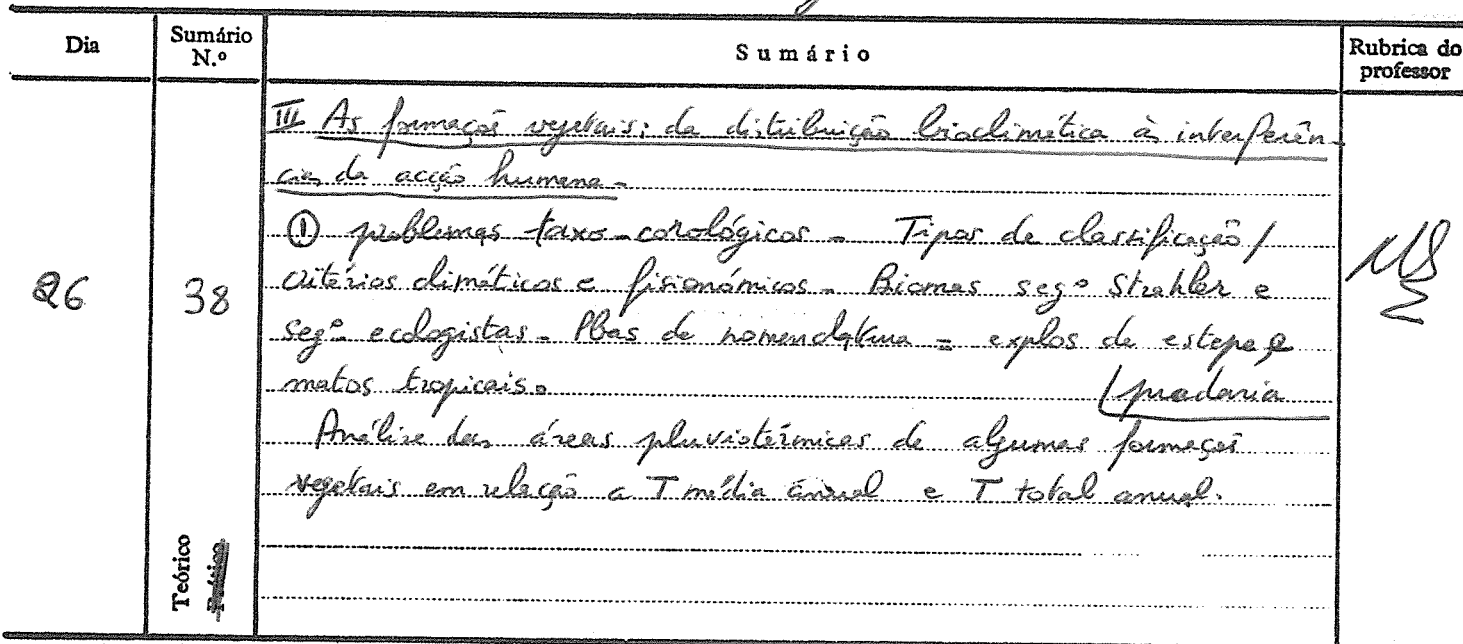 Dia
Sumário
N.º
Sumário
Rubrica do
professor
26
38
Teórico
Prático
III As formações vegetais: da distribuição bioclimática às interferên-
cias da acção humana-
① problemas taxo-corológicos - Tipos de classificação /
critérios climáticos e fisionómicos - Biomas segº Strahler e
segº ecologistas - Pbas de nomenclatura = explos de estepe e
matos tropicais.
pradaria
Análise das áreas pluviotérmicas de algumas formações
vegetais em relação a T média anual e T total anual.